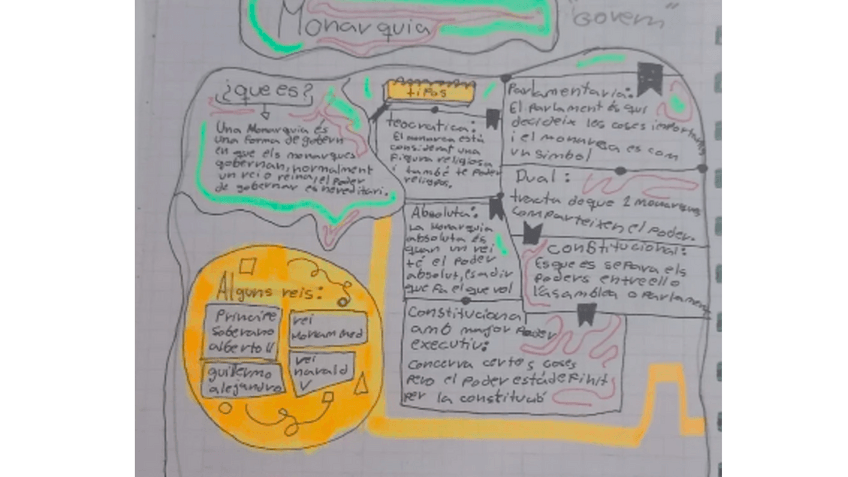 Monarquia
"Govern"
¿que es?
Una Monarquia és
una forma de govern
en que els monarques
gobernan, normalment
un rei o reina, el poder
de gobernar es hereditari.
tipos
teocratica:
El monarca está
considerat una
figura religiosa
i també te poder
religios.
Parlamentaria:
El Parlament és qui
decideix les coses importants
i el monarca es com
un simbol
Dual:
tracta de que 2 monarques
comparteixen el poder.
Absoluta:
La Monarquia
absoluta és
quan un rei
té el poder
absolut, es a dir
que fa el que vol
constitucional:
Es que es separa els
Poders entre ell o
l'asamblea o Parlament
Constitucional
amb major Poder
executiu:
concerva certes coses
Pero el Poder está definit
Per la constitució
Alguns reis:
Principe
soberano
alberto II
rei
Mohammed
guillermo
alejandro
rei
harald
V